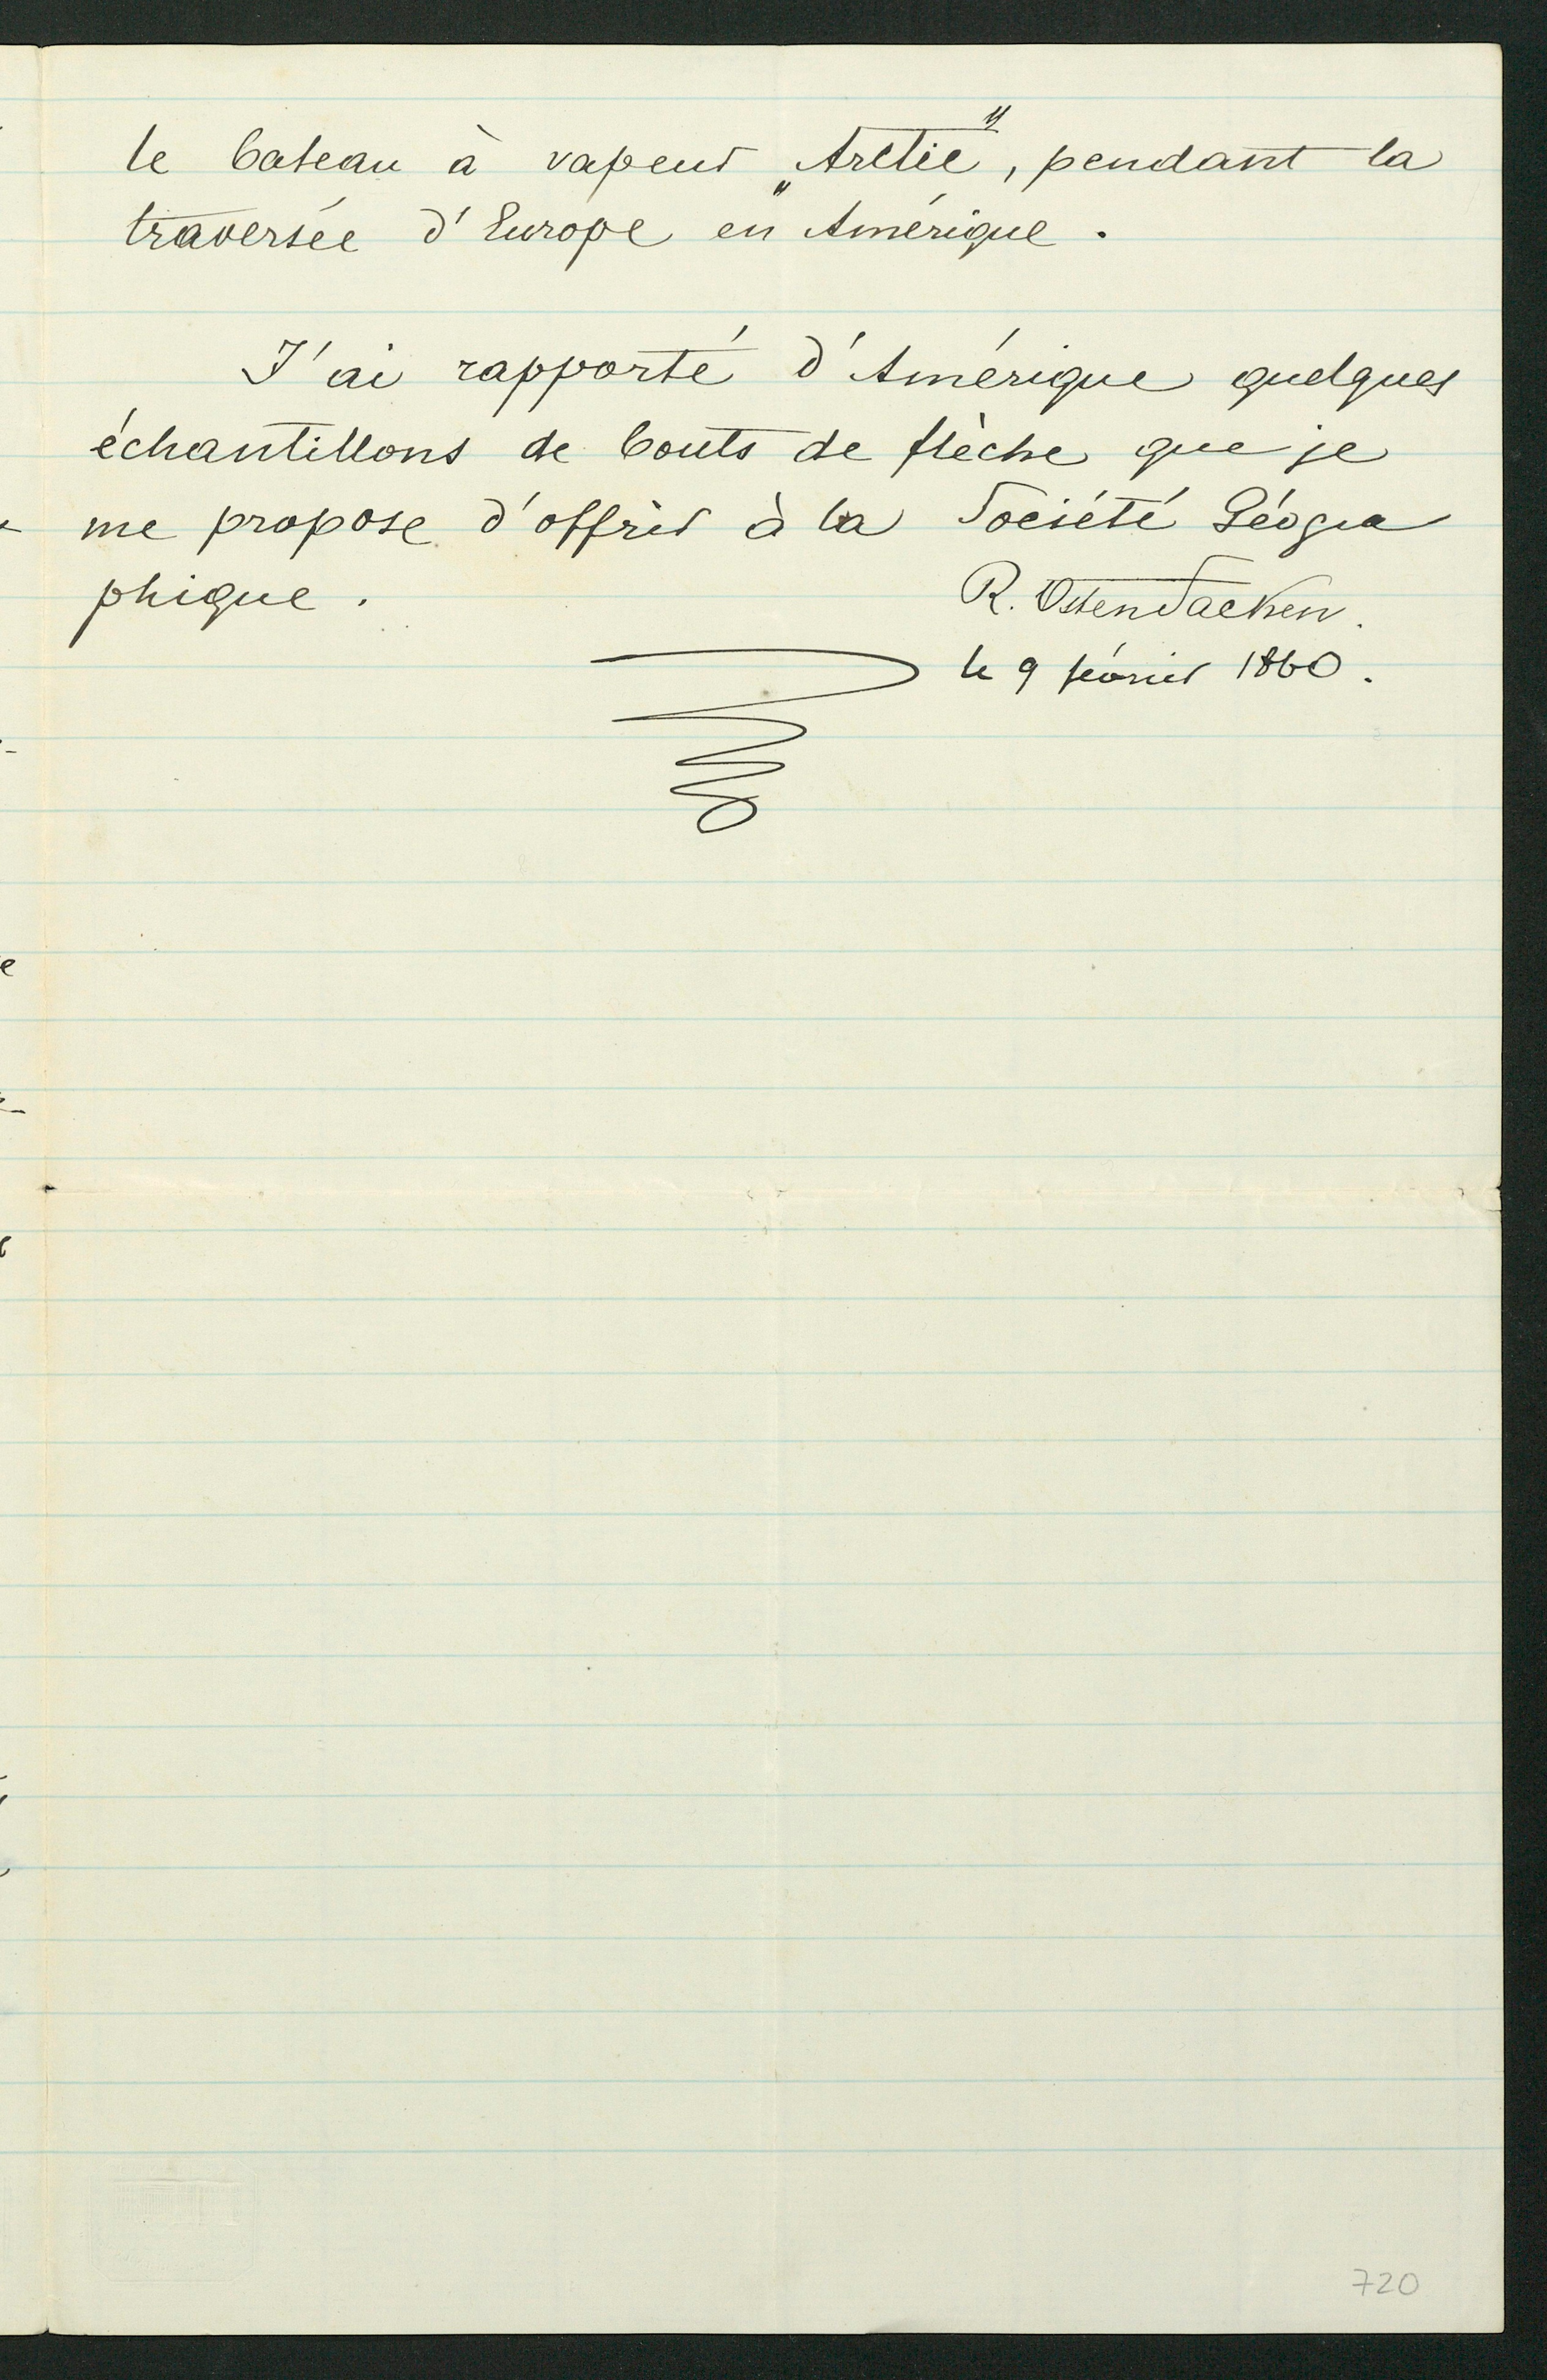 le bateau à vapeur „Arctic", pendant la
traversée d'Europe en Amérique.
J'ai rapporté d'Amérique quelques
échantillons de bouts de flèche que je
me propose d'offrir à la Société Géogra
phique.
R. OstenSacken.
le 9 février 1860.
720